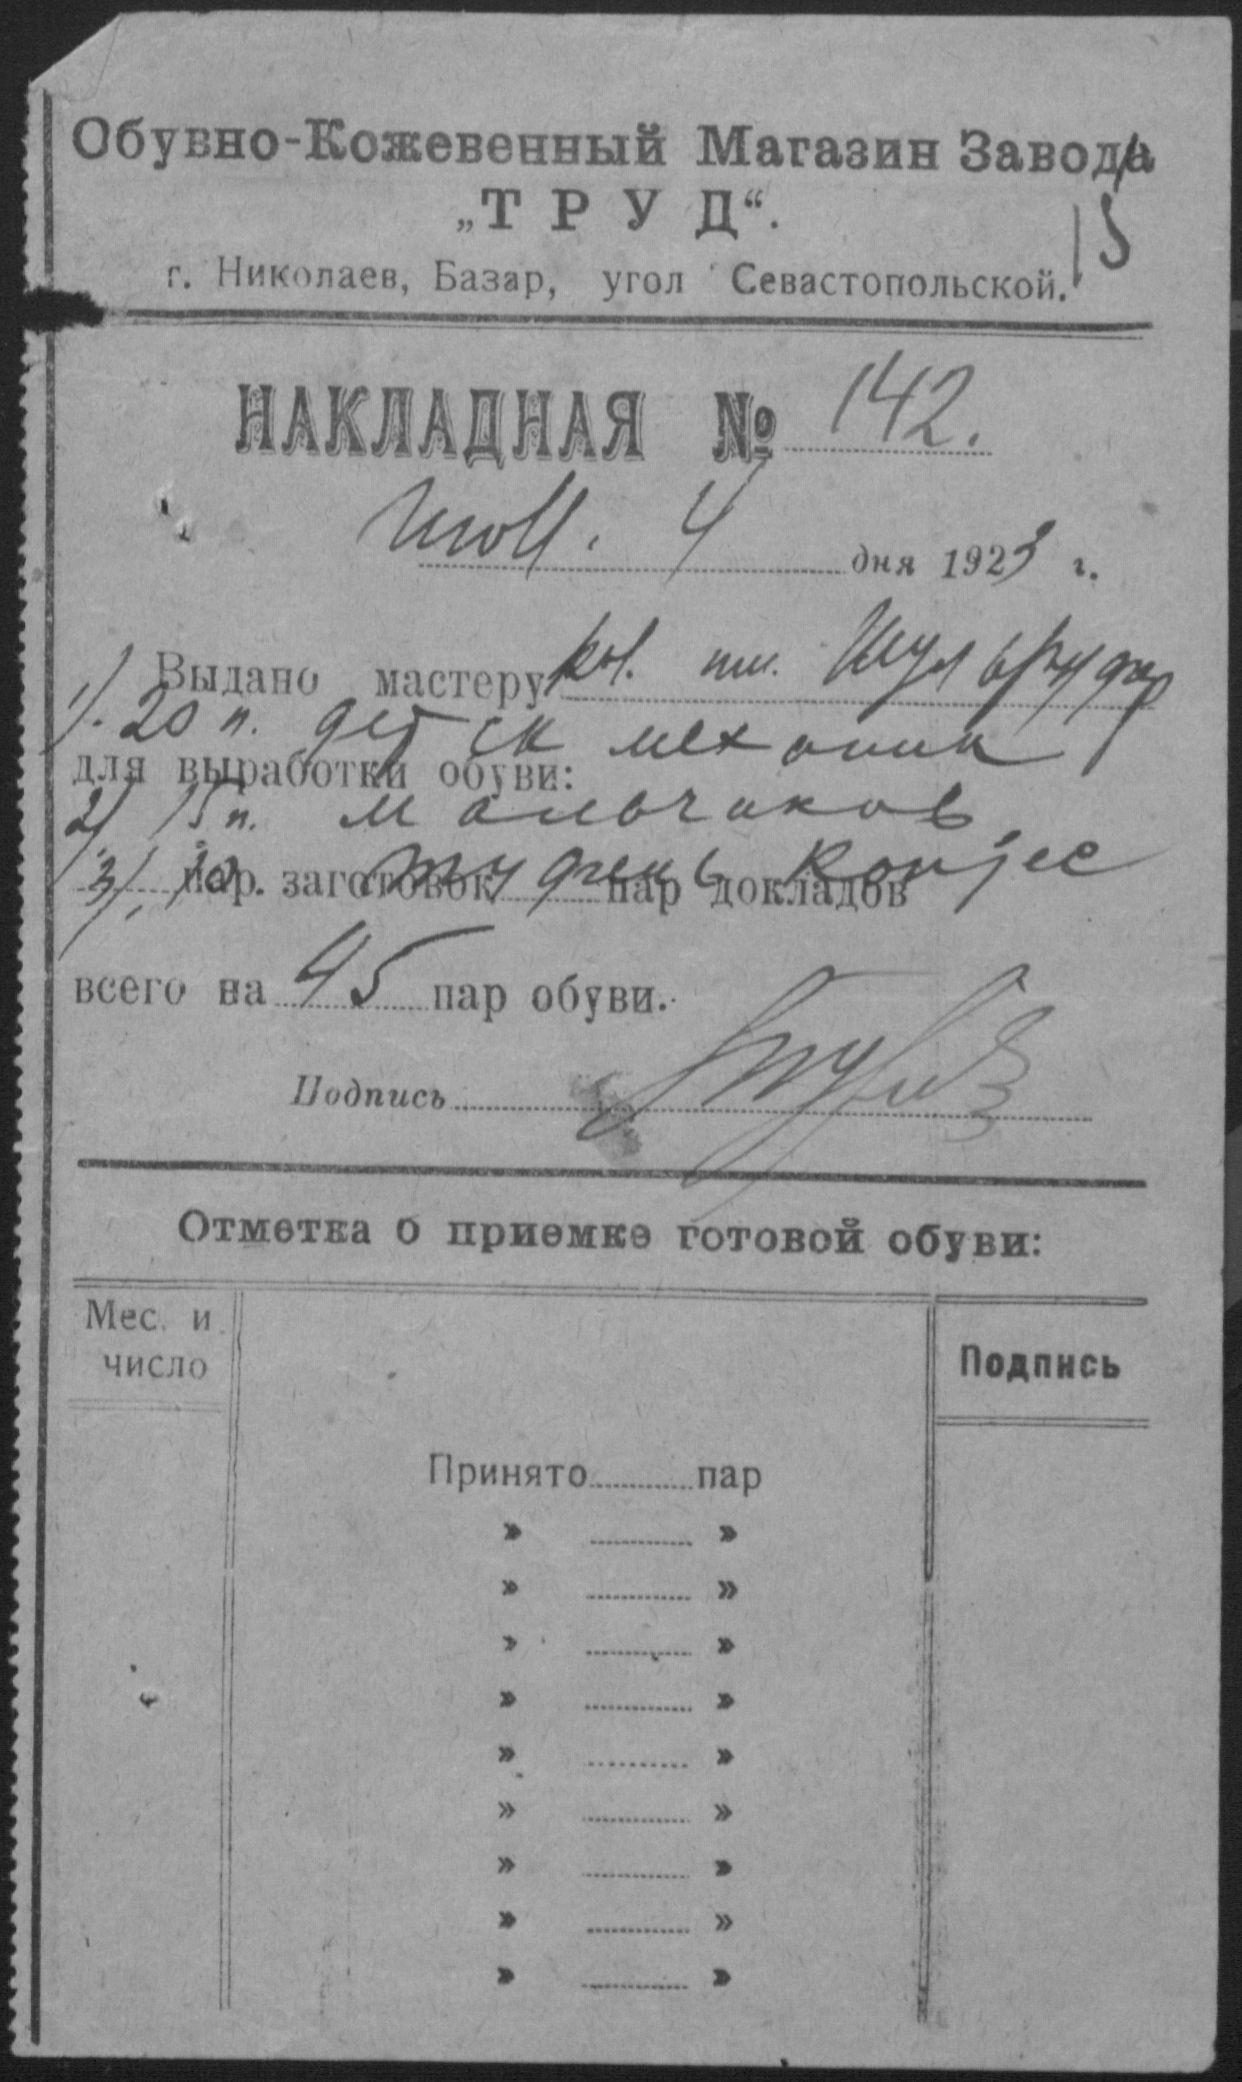 Обувно-Кожевенный Магазин Завода
„ТРУД“.
15
г. Николаев, Базар, угол Севастопольской.
НАКЛАДНАЯ № 142.
4 дня 1923 г.
Выдано мастеру
1). 20 п. детск механик
для выработки обуви:
2) 15 п. мальчиков
3) 10 туфель
пар заготовок пар докладов
всего на 45 пар обуви.
Подпись
Отметка о приемке готовой обуви:
Мес. и число
Подпись
Принято пар
» »
» »
» »
» »
» »
» »
» »
» »
» »